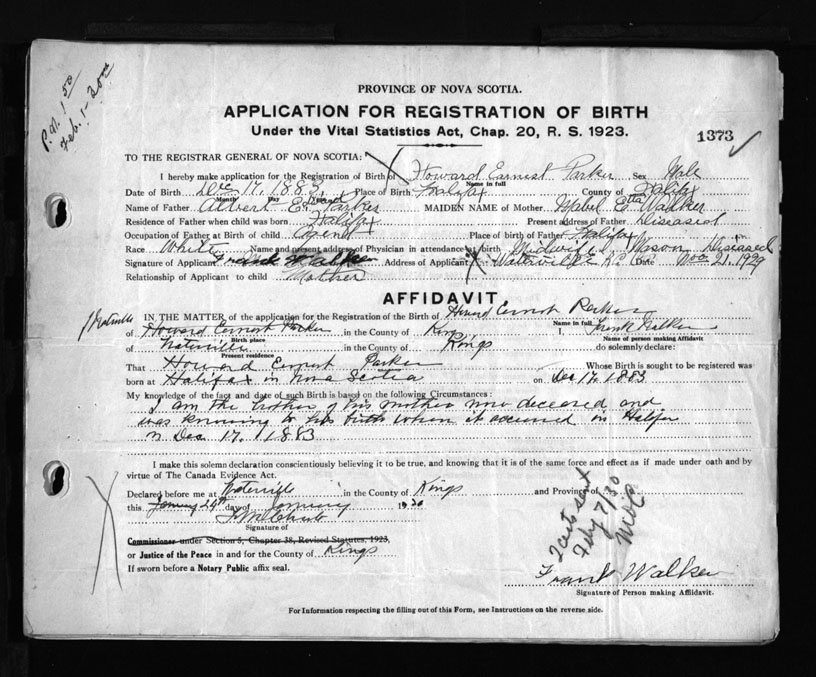 P.M. 1 50
Feb. 1-30
PROVINCE OF NOVA SCOTIA.
APPLICATION FOR REGISTRATION OF BIRTH
Under the Vital Statistics Act, Chap. 20, R. S. 1923.
1373
TO THE REGISTRAR GENERAL OF NOVA SCOTIA:
I hereby make application for the Registration of Birth of Howard Ernest Parker Sex Male
Name in full
Date of Birth Dec 17. 1883. Place of Birth Halifax County of Halifax
Month Day
Name of Father Albert E. Parker MAIDEN NAME of Mother Mabel Etta Walker
Residence of Father when child was born Halifax Present address of Father Diseased
Occupation of Father at Birth of child Place of birth of Father Halifax
Race White Name and present address of Physician in attendance at birth Midwife Mason Diseased
Signature of Applicant Frank Walker Address of Applicant Waterville Nov 21. 1929
Relationship of Applicant to child Mother
AFFIDAVIT
IN THE MATTER of the application for the Registration of the Birth of Howard Ernest Parker
Name in full
of Howard Ernest Parker in the County of Kings I, Frank Walker
Birth place
Name of person making Affidavit
of Waterville in the County of Kings do solemnly declare:
Present residence
That Howard Ernest Parker Whose Birth is sought to be registered was
born at Halifax in Nova Scotia on Dec 17. 1883
My knowledge of the fact and date of such Birth is based on the following Circumstances:
I am the brother of his mother now deceased and
was knowing to his birth when it occured in Halifax
n Dec 17. 1883
I make this solemn declaration conscientiously believing it to be true, and knowing that it is of the same force and effect as if made under oath and by
virtue of The Canada Evidence Act.
Declared before me at Waterville in the County of Kings and Province of
this 24th day of January 1930
Signature of
Commissioner under Section 5, Chapter 38, Revised Statutes, 1923,
or Justice of the Peace in and for the County of Kings
If sworn before a Notary Public affix seal.
2 certs sent
Feb 7/30
Frank Walker
Signature of Person making Affidavit.
For Information respecting the filling out of this Form, see Instructions on the reverse side.